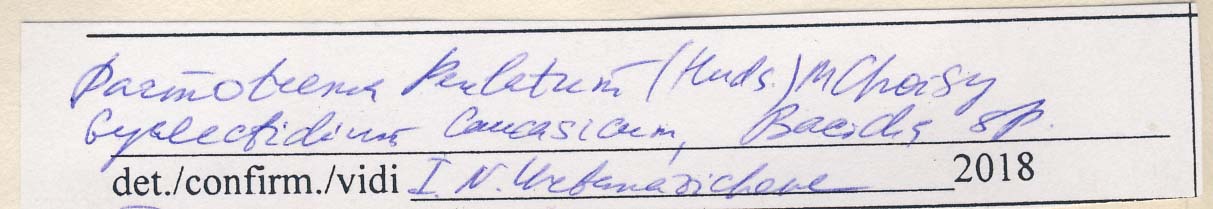 Parmotrema Perlatum (Huds.) M Choisy
Gyalectidium Caucasicum, Bacidia sp.
det./confirm./vidi I. N. Urbanavichene 2018